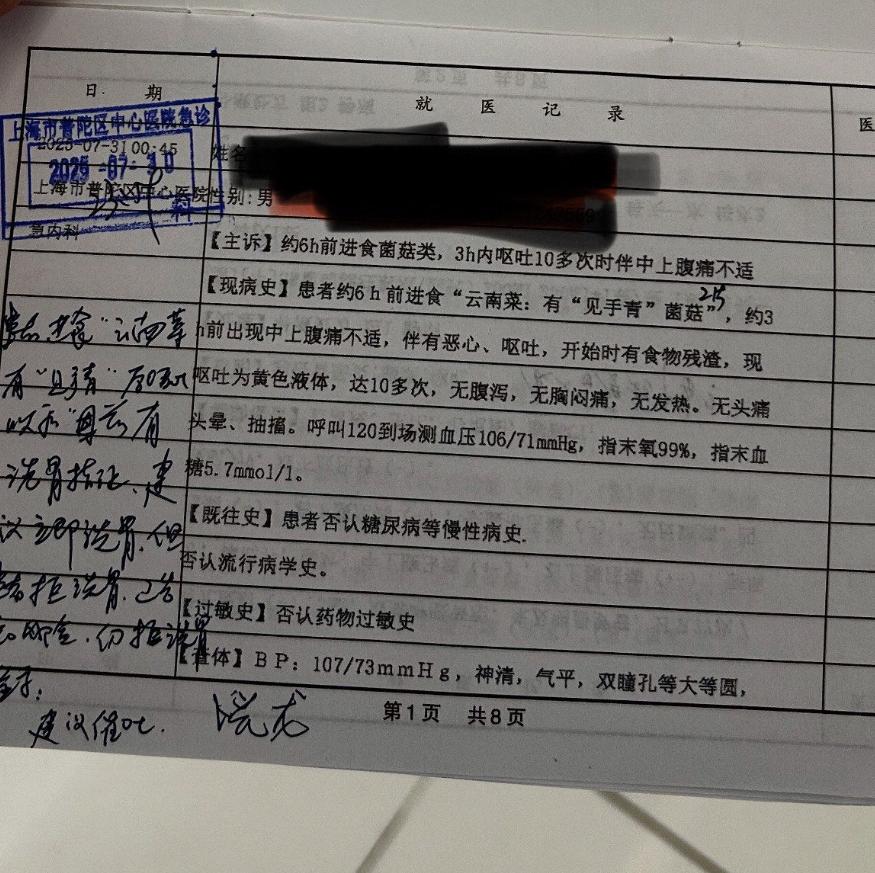 日 期
就 医 记 录
医
上海市普陀区中心医院急诊
2025-07-31 00:45
姓名
上海市普陀区中心医院
性别:男
科
急内科
【主诉】约6h前进食菌菇类，3h内呕吐10多次时伴中上腹痛不适
【现病史】患者约6h前进食“云南菜：有“见手青”菌菇”，约3
h前出现中上腹痛不适，伴有恶心、呕吐，开始时有食物残渣，现
呕吐为黄色液体，达10多次，无腹泻，无胸闷痛，无发热。无头痛
头晕、抽搐。呼叫120到场测血压106/71mmHg，指末氧99%，指末血
糖5.7mmol/l。
【既往史】患者否认糖尿病等慢性病史.
否认流行病学史。
【过敏史】否认药物过敏史
【查体】BP：107/73mmHg，神清，气平，双瞳孔等大等圆，
有
洗胃指征，建
议立即洗胃，但
拒洗胃
仍拒洗胃
签字：
建议催吐.
第1页 共8页